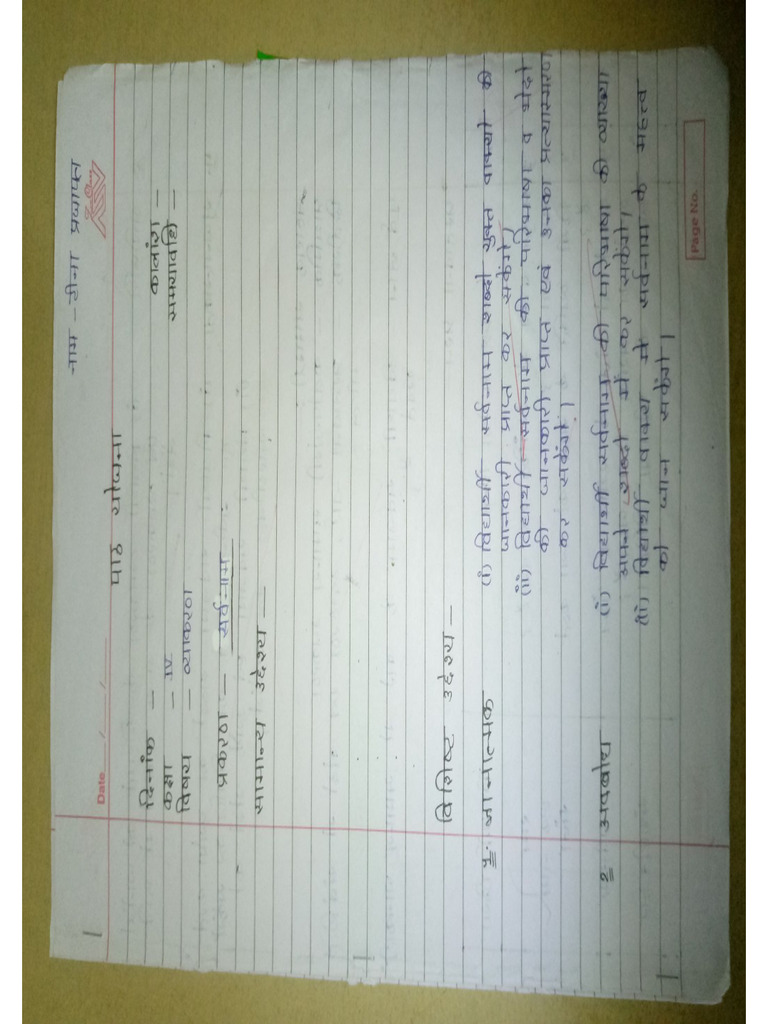 नाम - टीना प्रजापत
Date
पाठ योजना
दिनांक -
कालांश -
कक्षा - IV
समयावधि -
विषय - व्याकरण
प्रकरण - सर्वनाम
सामान्य उद्देश्य -
विशिष्ट उद्देश्य -
1. ज्ञानात्मक
(i) विद्यार्थी सर्वनाम शब्दो युक्त वाक्यो की
जानकारी प्राप्त कर सकेंगे।
(ii) विद्यार्थी सर्वनाम की परिभाषा व भेदो
की जानकारी प्राप्त एवं उनका प्रत्यास्मरण
कर सकेंगे।
2 अवबोध
(i) विद्यार्थी सर्वनाम की परिभाषा की व्याख्या
अपने शब्दो में कर सकेंगे।
(ii) विद्यार्थी वाक्य मे सर्वनाम के महत्व
को जान सकेंगे।
Page No.